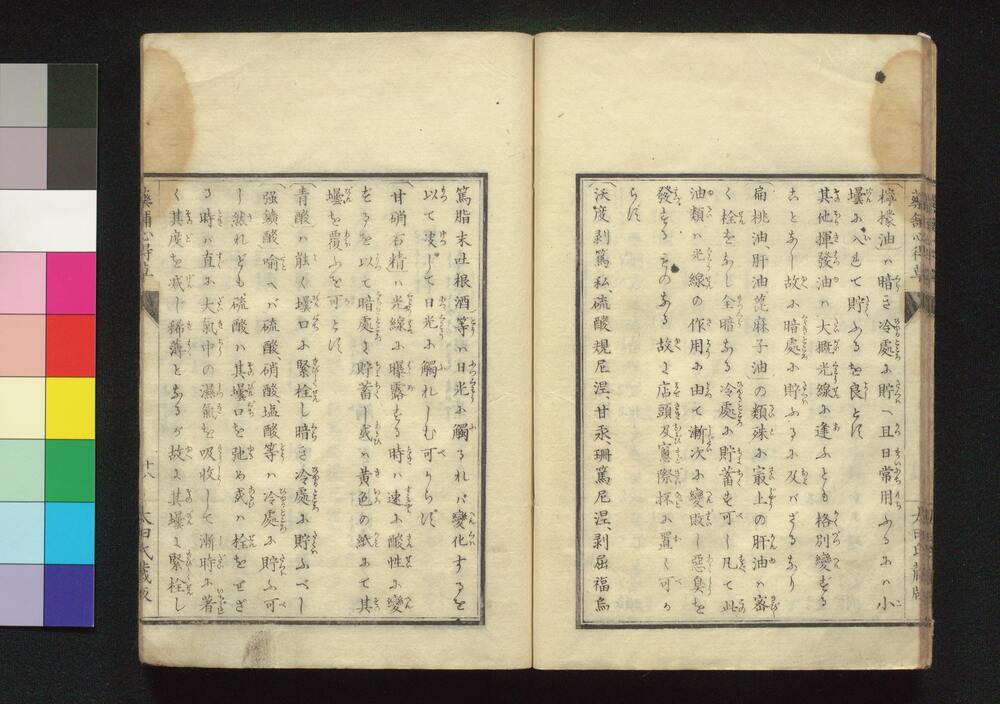 檸檬油ハ暗き冷處に貯へ且日常用ふるにハ小
壜に入れて貯ふるを良とす
其他揮發油ハ大概光線に逢ふとも格別變ずる
ことなし故に暗處に貯ふるに及バざるなり
扁桃油、肝油蓖麻子油の類殊に最上の肝油ハ密
く栓をなし全暗なる冷處に貯蓄す可し凡て此
油類ハ光線の作用に由て漸次に變敗し惡臭を
發するものなる故に店頭及窻際抔に置く可か
らず
沃度剥篤亞私、硫酸規尼涅、甘汞、珊篤尼涅、剥屈福烏
篤脂末吐根酒等ハ日光に觸るれバ變化するを
以て决して日光に觸れしむ可からず
甘硝石精ハ光線に曝露する時ハ速に酸性に變
ずるを以て暗處に貯蓄し或ハ黄色の紙にて其
壜を覆ふを可とす
青酸ハ能く壜口に緊栓し暗き冷處に貯ふべし
強鑛酸喩へバ硫酸、硝酸、塩酸等ハ冷處に貯ふ可
し然れども硫酸ハ其壜口を弛め或ハ栓をせざ
る時ハ直に大氣中の濕氣を吸收して漸時に著
く其度を减じ稀薄となるが故に其壜を緊栓し
藥舗心得草
十八
太田氏藏版